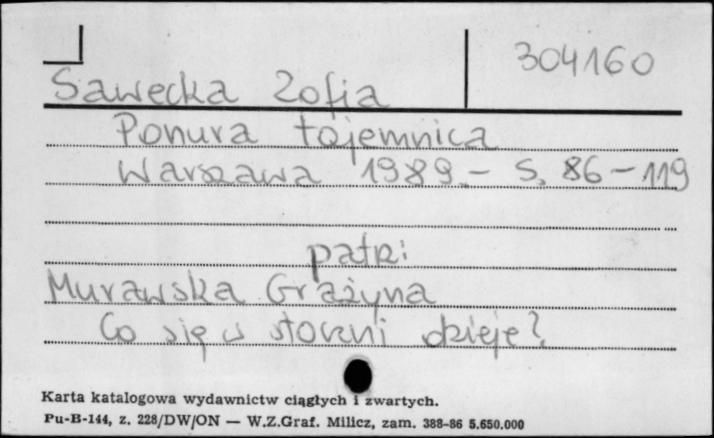 304160
Sawecka Zofia
Ponura tajemnica
Warszawa 1989.- S. 86-119
patrz:
Murawska Grażyna
Co się w stoczni dzieje?
Karta katalogowa wydawnictw ciągłych i zwartych.
Pu-B-144, z. 228/DW/ON — W.Z.Graf. Milicz, zam. 388-86 5.650.000